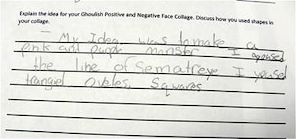 Explain the idea for your Ghoulish Positive and Negative Face Collage. Discuss how you used shapes in
your collage.
- My Idea was to make a
pink and purple monster I
the line of Sematreye I youse
trangel Ovels, Squares